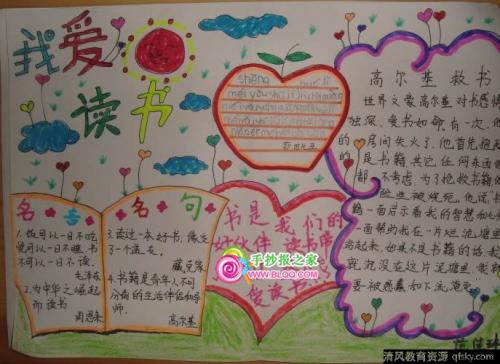 我爱
读书
高尔基救书
世界文豪高尔基对书感情
独深,爱书如命,有一次,他
的房间失火了,他首先抱起
的是书籍,其它任何东西他
都不考虑,为了抢救书籍
险些被烧死,他说,书
籍一面启示着我的智慧和心
一面帮助我在一片烂泥塘里
起来,如果不是书籍的话,我
就沉没在这片泥塘里,我
要被愚蠢和下流淹死
名言名句
1.饭可以一日不吃
觉可以一日不睡,书
不可以一日不读。
毛泽东
2.为中华之崛起
而读书
周恩来
3.读过一本好书,像交
了一个益友。
臧克家
4.书籍是青年人不可
分离的生活伴侣和导
师.
高尔基
书是我们的
好伙伴
读书
爱读书
手抄报之家
WWW.BLQQ.COM
清风教育资源 qfsky.com